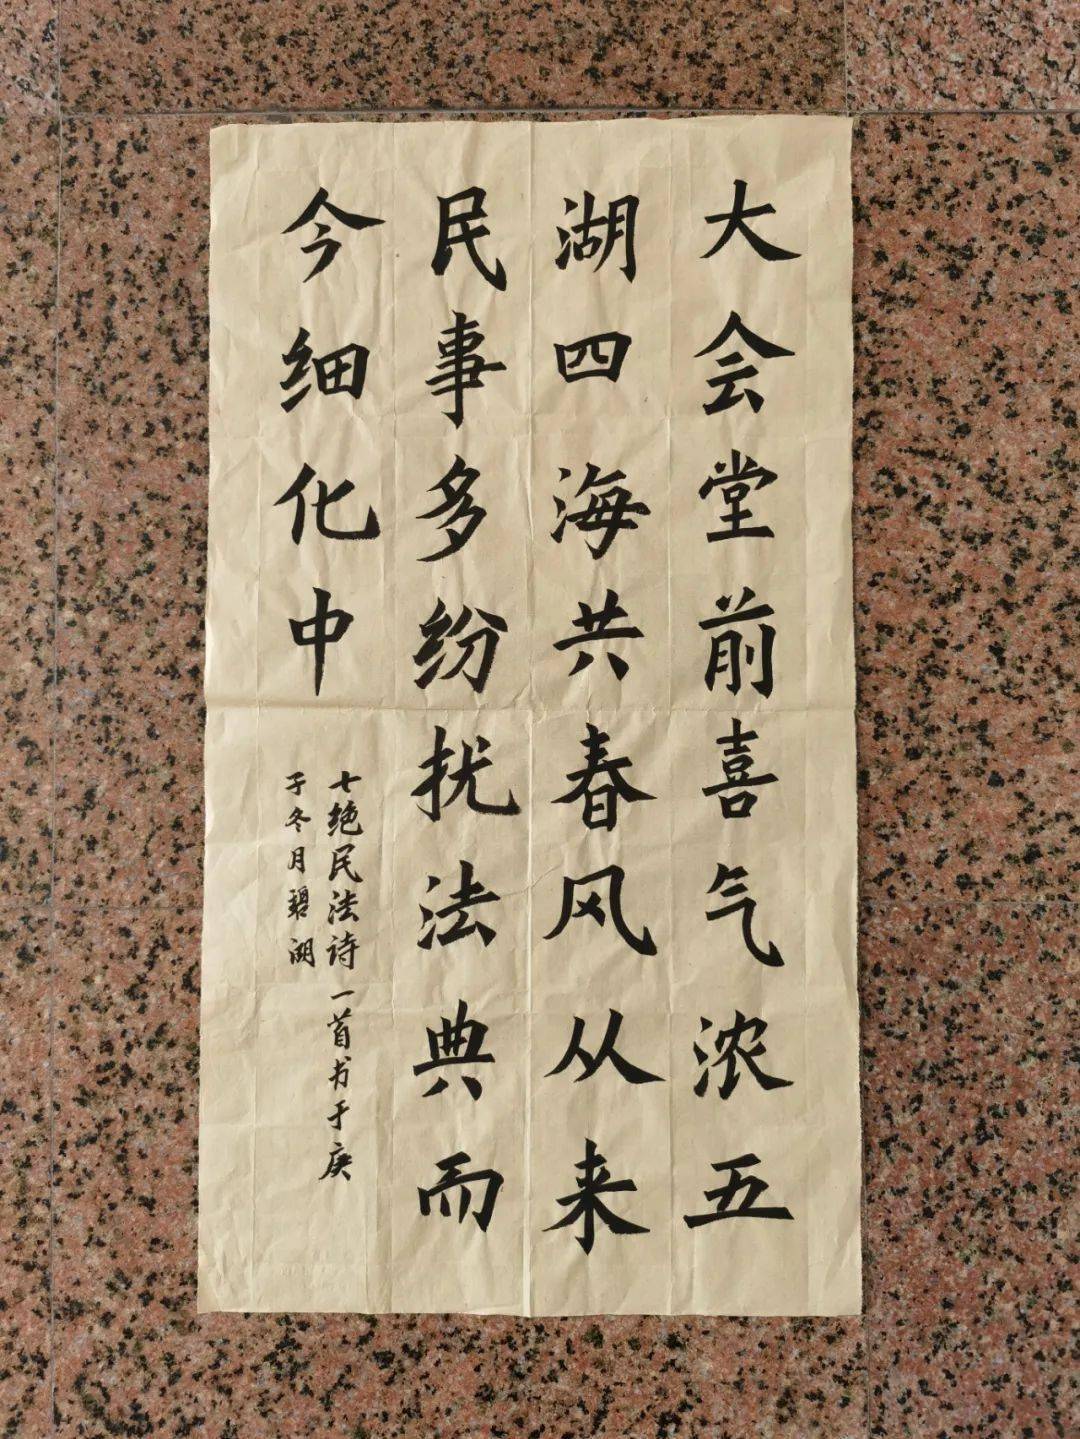 大会堂前喜气浓五
湖四海共春风从来
民事多纷扰法典而
今细化中
七绝民法诗一首书于庚
子冬月碧湖